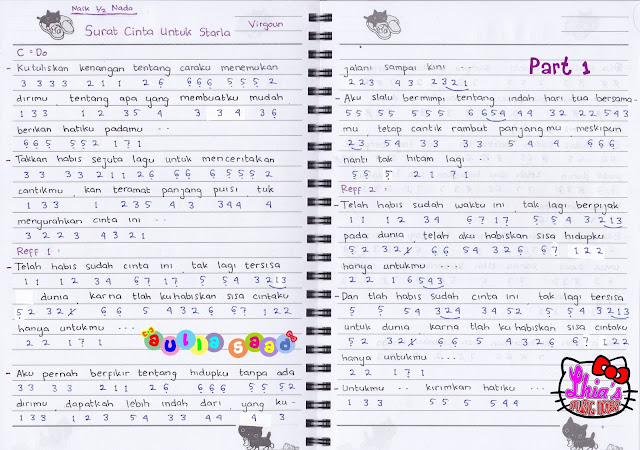 Naik 1/2 Nada
Surat Cinta Untuk Starla
Virgoun
C = Do
- Kutuliskan kenangan tentang caraku menemukan
3 3 3 3 2 1 1 2 6 6 6 6 5 5 5 2
dirimu, tentang apa yang membuatku mudah
1 3 3 1 2 3 5 4 3 3 4 3 6
berikan hatiku padamu ...
6 6 5 5 5 2 1 7 1
- Takkan habis sejuta lagu untuk menceritakan
3 3 3 3 2 1 1 2 6 6 6 6 5 5 5 2
cantikmu, kan teramat panjang puisi, tuk
1 3 3 1 2 3 5 4 3 4 3 3
menyurahkan cinta ini ...
3 2 2 3 4 3 2 1
Reff 1 :
- Telah habis sudah cinta ini, tak lagi tersisa
1 1 1 2 3 4 6 7 1 7 5 5 4 3 2 1 3
dunia, karna tlah ku habiskan sisa cintaku
hanya untukmu ...
2 2 1 7 1
aulia saad
- Aku pernah berpikir tentang hidupku tanpa ada
3 3 3 3 2 1 1 2 6 6 6 6 5 5 5 2
dirimu, dapatkah lebih indah dari, yang ku-
1 3 3 1 2 3 5 4 3 4 4 4 3
jalani sampai kini ...
2 2 3 4 3 2 3 2 1
Part 1
- Aku slalu bermimpi tentang indah hari tua bersama-
5 5 5 5 5 5 5 6 6 5 4 4 4 3 2 2 2 5 4 3
mu, tetap cantik rambut panjangmu meskipun
2 3 5 4 3 3 3 3 5 4 4 6 6 6
nanti tak hitam lagi ...
5 5 5 2 1 7 1
Reff 2 :
- Telah habis sudah waktu ini, tak lagi berpijak
1 1 1 2 3 4 6 7 1 7 5 5 4 3 2 1 3
pada dunia telah aku habiskan sisa hidupku
hanya untukmu
2 2 1 6 5 4 3
- Dan tlah habis sudah cinta ini, tak lagi tersisa
5 5 5 4 3 2 4 3 4 5 2 5 5 4 3 2 1 3
untuk dunia karna tlah ku habiskan sisa cintaku
hanya untukmu ...
2 2 1 7 1
- Untukmu ... kirimkan hatiku ...
1 3 3 5 5 5 5 4 4
Lhia's